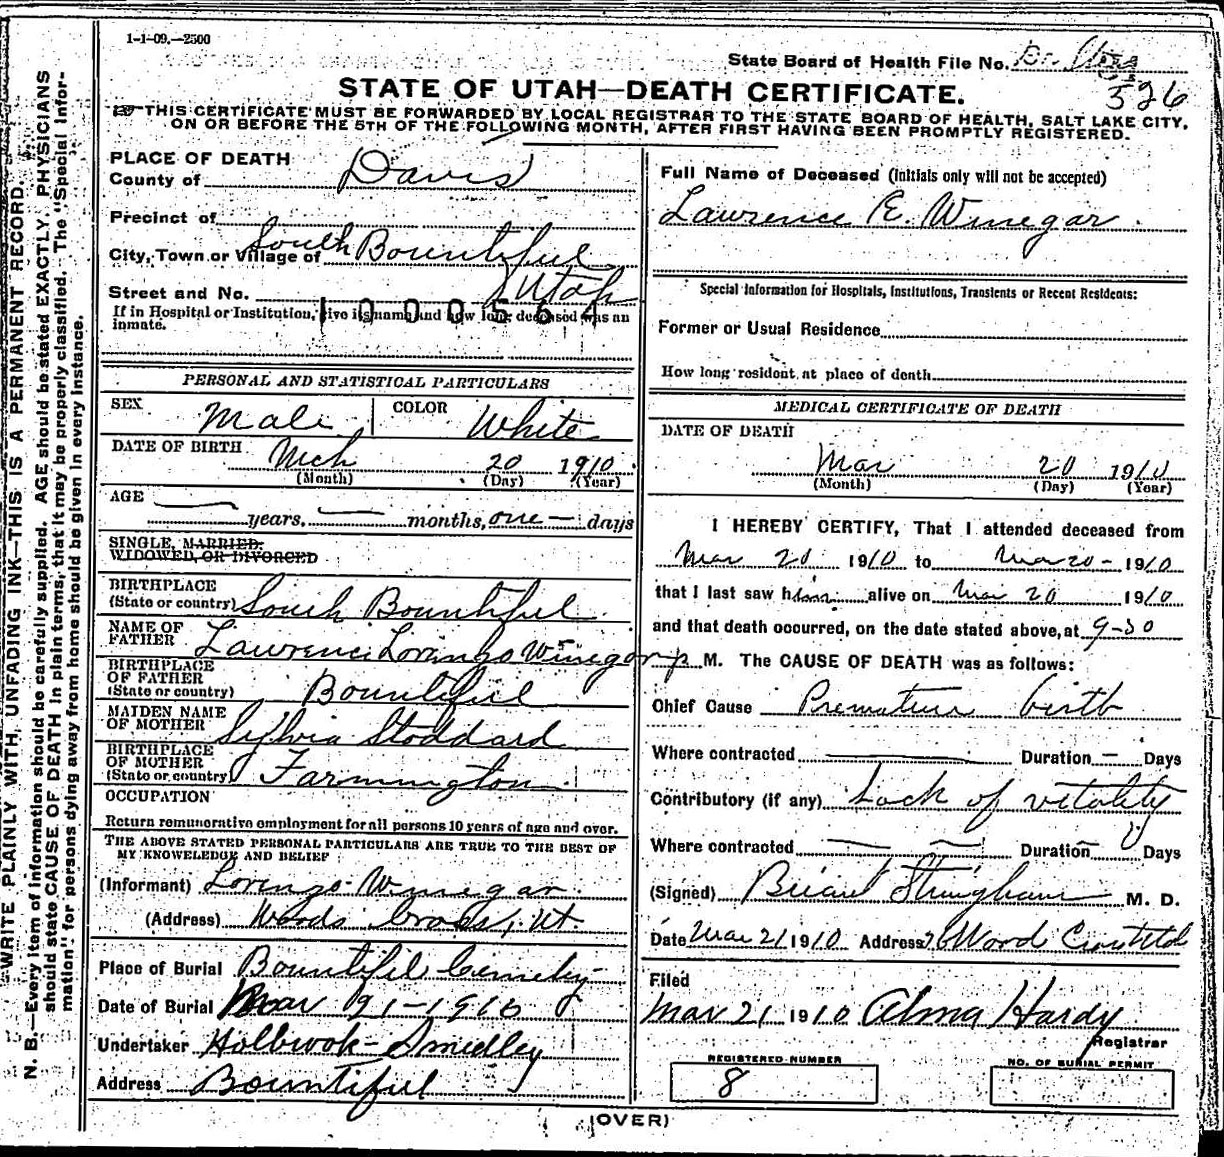 1-1-09.—2500
State Board of Health File No.
526
STATE OF UTAH—DEATH CERTIFICATE.
THIS CERTIFICATE MUST BE FORWARDED BY LOCAL REGISTRAR TO THE STATE BOARD OF HEALTH, SALT LAKE CITY,
ON OR BEFORE THE 5TH OF THE FOLLOWING MONTH, AFTER FIRST HAVING BEEN PROMPTLY REGISTERED.
PLACE OF DEATH
County of Davis
Precinct of
City, Town or Village of South Bountiful
Utah
Street and No.
1000564
If in Hospital or Institution, give its name and how long deceased was an
inmate.
PERSONAL AND STATISTICAL PARTICULARS
SEX Male COLOR White
DATE OF BIRTH Mch 20 1910
(Month) (Day) (Year)
AGE
— years, — months, one — days
SINGLE, MARRIED.
WIDOWED, OR DIVORCED
BIRTHPLACE
(State or country) South Bountiful
NAME OF
FATHER Lawrence Lorenzo Winegar
BIRTHPLACE
OF FATHER
(State or country) Bountiful
MAIDEN NAME
OF MOTHER Sylvia Stoddard
BIRTHPLACE
OF MOTHER
(State or country) Farmington
OCCUPATION
Return remunerative employment for all persons 10 years of age and over.
THE ABOVE STATED PERSONAL PARTICULARS ARE TRUE TO THE BEST OF
MY KNOWLEDGE AND BELIEF
(Informant) Lorenzo Winegar
(Address) Woods Cross, Ut.
Place of Burial Bountiful Cemetery
Date of Burial Mar 21-1910
Undertaker Holbrook-Smedley
Address Bountiful
Full Name of Deceased (initials only will not be accepted)
Lawrence E. Winegar.
Special Information for Hospitals, Institutions, Transients or Recent Residents:
Former or Usual Residence
How long resident at place of death
MEDICAL CERTIFICATE OF DEATH
DATE OF DEATH
Mar 20 1910
(Month) (Day) (Year)
I HEREBY CERTIFY, That I attended deceased from
Mar 20 1910 to Mar 20 - 1910
that I last saw him alive on Mar 20 1910
and that death occurred, on the date stated above, at 9-30
p M. The CAUSE OF DEATH was as follows:
Chief Cause Premature birth
Where contracted — Duration — Days
Contributory (if any) Lack of vitality
Where contracted — — Duration — Days
(Signed) Briant Stringham M. D.
Date Mar 21 1910 Address Wood
Filed
Mar 21 1910 Alma Hardy
Registrar
REGISTERED NUMBER
8
NO. OF BURIAL PERMIT
(OVER)
N. B.—WRITE PLAINLY WITH UNFADING INK—THIS IS A PERMANENT RECORD.
Every item of information should be carefully supplied. AGE should be stated EXACTLY. PHYSICIANS
should state CAUSE OF DEATH in plain terms, that it may be properly classified. The "Special Infor-
mation" for persons dying away from home should be given in every instance.